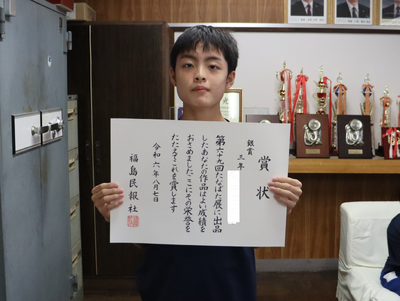 賞状
銀賞
三年
第六十九回たなばた展に出品
したあなたの作品はよい成績を
おさめました ここにその栄誉を
たたえこれを賞します
令和六年八月七日
福島民報社